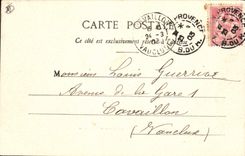 CARTE POSTALE
Ce côté est exclusivement
CAVAILLON
VAUCLUSE
PROVENCE
B. DU R.
Monsieur Louis Guerrier
Avenue de la Gare 1
Cavaillon
(Vaucluse)